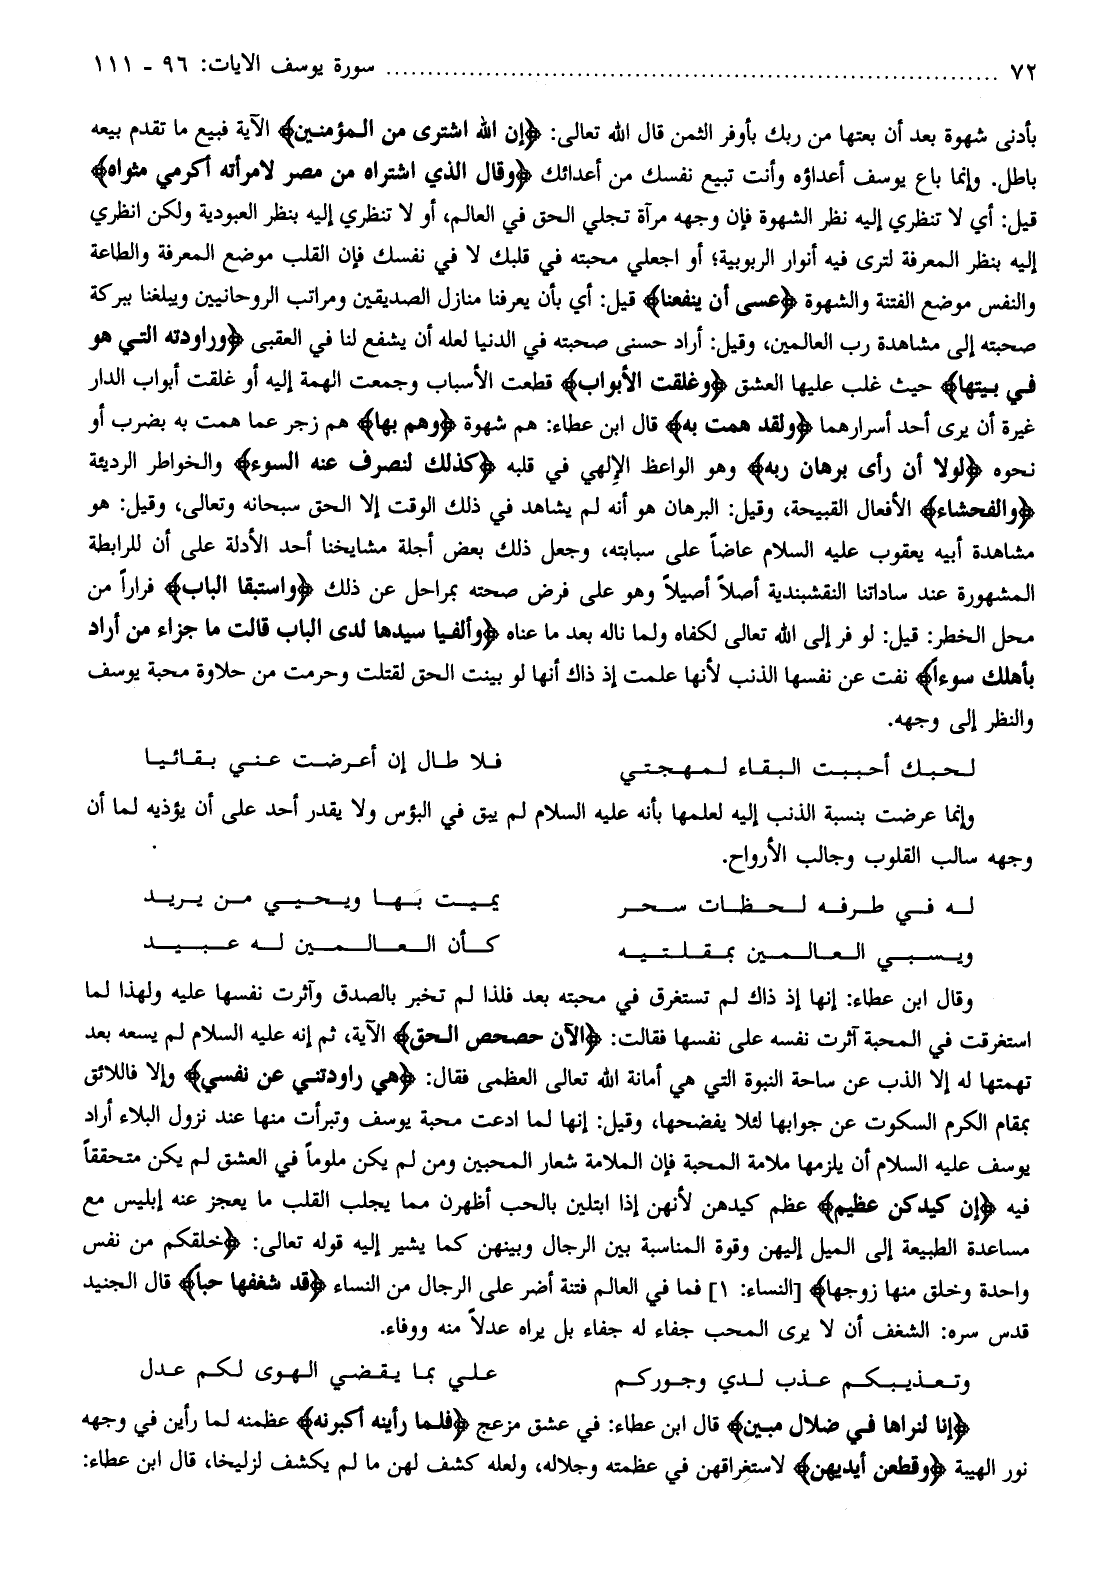 ٧٢ ........ سورة يوسف الايات: ٩٦ ـ ١١١
بأدنى شهوة بعد أن بعتها من ربك بأوفر الثمن قال الله تعالى: ﴿إن الله اشترى من المؤمنين﴾ الآية فبيع ما تقدم بيعه
باطل. وإنما باع يوسف أعداؤه وأنت تبيع نفسك من أعدائك ﴿وقال الذي اشتراه من مصر لامرأته أكرمي مثواه﴾
قيل: أي لا تنظري إليه نظر الشهوة فإن وجهه مرآة تجلي الحق في العالم، أو لا تنظري إليه بنظر العبودية ولكن انظري
إليه بنظر المعرفة لترى فيه أنوار الربوبية؛ أو اجعلي محبته في قلبك لا في نفسك فإن القلب موضع المعرفة والطاعة
والنفس موضع الفتنة والشهوة ﴿عسى أن ينفعنا﴾ قيل: أي بأن يعرفنا منازل الصديقين ومراتب الروحانيين ويبلغنا ببركة
صحبته إلى مشاهدة رب العالمين، وقيل: أراد حسنى صحبته في الدنيا لعله أن يشفع لنا في العقبى ﴿وراودته التي هو
في بيتها﴾ حيث غلب عليها العشق ﴿وغلقت الأبواب﴾ قطعت الأسباب وجمعت الهمة إليه أو غلقت أبواب الدار
غيرة أن يرى أحد أسرارهما ﴿ولقد همت به﴾ قال ابن عطاء: هم شهوة ﴿وهم بها﴾ هم زجر عما همت به بضرب أو
نحوه ﴿لولا أن رأى برهان ربه﴾ وهو الواعظ الإلهي في قلبه ﴿كذلك لنصرف عنه السوء﴾ والخواطر الرديئة
﴿والفحشاء﴾ الأفعال القبيحة، وقيل: البرهان هو أنه لم يشاهد في ذلك الوقت إلا الحق سبحانه وتعالى، وقيل: هو
مشاهدة أبيه يعقوب عليه السلام عاضاً على سبابته، وجعل ذلك بعض أجلة مشايخنا أحد الأدلة على أن للرابطة
المشهورة عند ساداتنا النقشبندية أصلاً أصيلاً وهو على فرض صحته بمراحل عن ذلك ﴿واستبقا الباب﴾ فراراً من
محل الخطر: قيل: لو فر إلى الله تعالى لكفاه ولما ناله بعد ما عناه ﴿وألفيا سيدها لدى الباب قالت ما جزاء من أراد
بأهلك سوءاً﴾ نفت عن نفسها الذنب لأنها علمت إذ ذاك أنها لو بينت الحق لقتلت وحرمت من حلاوة محبة يوسف
والنظر إلى وجهه.
لحبك أحببت البقاء لمهجتي فلا طال إن أعرضت عني بقائيا
وإنما عرضت بنسبة الذنب إليه لعلمها بأنه عليه السلام لم يبق في البؤس ولا يقدر أحد على أن يؤذيه لما أن
وجهه سالب القلوب وجالب الأرواح.
له في طرفه لحظات سحر يميت بها ويحيي من يريد
ويسبي العالمين بمقلتيه كأن العالمين له عبيد
وقال ابن عطاء: إنها إذ ذاك لم تستغرق في محبته بعد فلذا لم تخبر بالصدق وآثرت نفسها عليه ولهذا لما
استغرقت في المحبة آثرت نفسه على نفسها فقالت: ﴿الآن حصحص الحق﴾ الآية، ثم إنه عليه السلام لم يسعه بعد
تهمتها له إلا الذب عن ساحة النبوة التي هي أمانة الله تعالى العظمى فقال: ﴿هي راودتني عن نفسي﴾ وإلا فاللائق
بمقام الكرم السكوت عن جوابها لئلا يفضحها، وقيل: إنها لما ادعت محبة يوسف وتبرأت منها عند نزول البلاء أراد
يوسف عليه السلام أن يلزمها ملامة المحبة فإن الملامة شعار المحبين ومن لم يكن ملوماً في العشق لم يكن متحققاً
فيه ﴿إن كيدكن عظيم﴾ عظم كيدهن لأنهن إذا ابتلين بالحب أظهرن مما يجلب القلب ما يعجز عنه إبليس مع
مساعدة الطبيعة إلى الميل إليهن وقوة المناسبة بين الرجال وبينهن كما يشير إليه قوله تعالى: ﴿خلقكم من نفس
واحدة وخلق منها زوجها﴾ [النساء: ١] فما في العالم فتنة أضر على الرجال من النساء ﴿قد شغفها حباً﴾ قال الجنيد
قدس سره: الشغف أن لا يرى المحب جفاء له جفاء بل يراه عدلاً منه ووفاء.
وتعذيبكم عذب لدي وجوركم علي بما يقضي الهوى لكم عدل
﴿إنا لنراها في ضلال مبين﴾ قال ابن عطاء: في عشق مزعج ﴿فلما رأينه أكبرنه﴾ عظمنه لما رأين في وجهه
نور الهيبة ﴿وقطعن أيديهن﴾ لاستغراقهن في عظمته وجلاله، ولعله كشف لهن ما لم يكشف لزليخا، قال ابن عطاء: